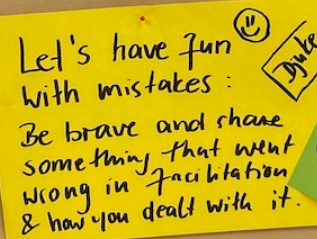 Let's have fun
with mistakes:
Be brave and share
something that went
wrong in facilitation
& how you dealt with it.